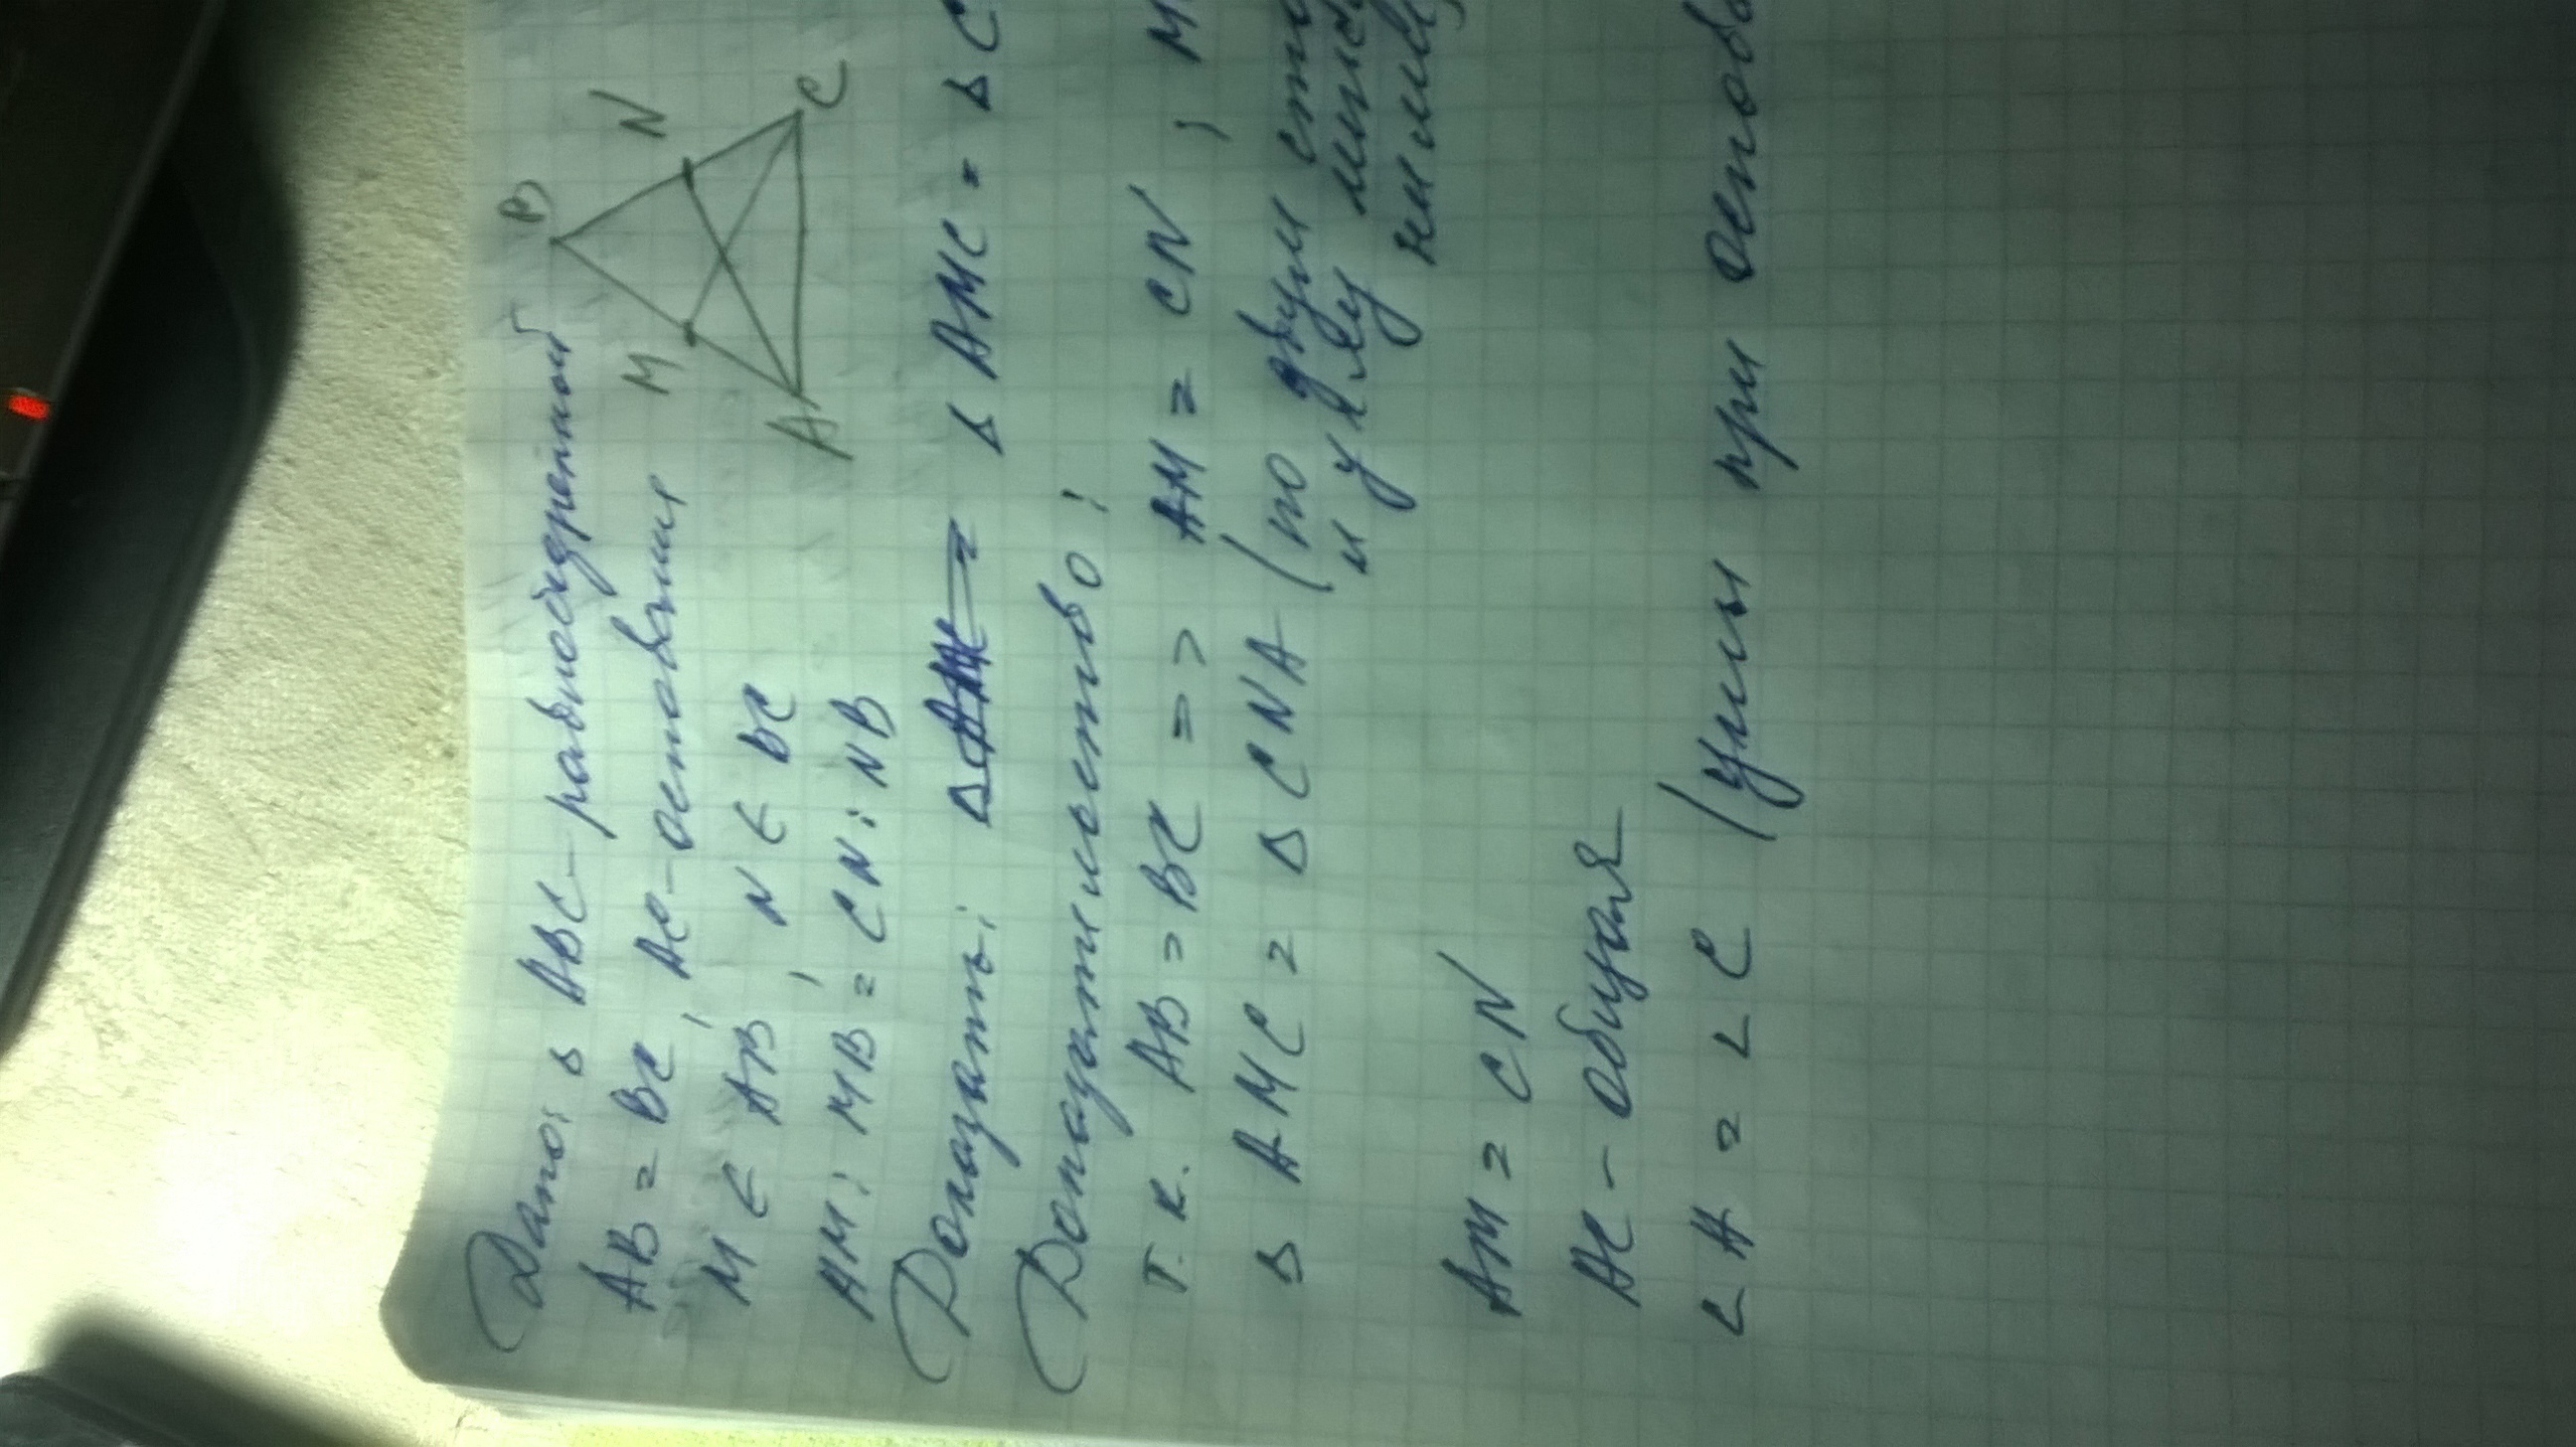 Дано: Δ ABC - равнобедренный
AB = BC, AC - основание
M ∈ AB, N ∈ BC
AM : MB = CN : NB
B
M
N
A
C
Доказать: Δ AMC = Δ C
Доказательство:
Т.к. AB = BC => AM = CN ; M
Δ AMC = Δ CNA (по двум
и углу между
ними
AM = CN
AC - общая
∠A = ∠C (углы при основа